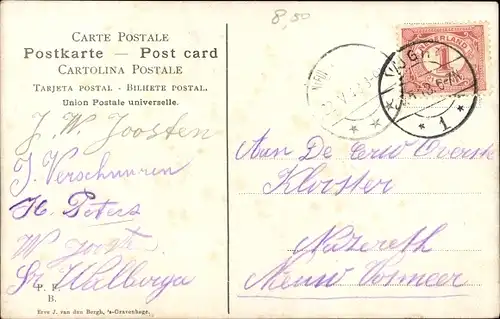 8,50
CARTE POSTALE
Postkarte — Post card
CARTOLINA POSTALE
TARJETA POSTAL - BILHETE POSTAL.
Union Postale universelle.
J. W. Joosten
J. Verschuuren
H. Peters
W.
Sr. Walburga
P. F.
B.
Erve J. van den Bergh, 's-Gravenhage.
NEDERLAND
1
1
Aan De Eerw Overste
Klooster
Nazareth
Nieuw Vosmeer